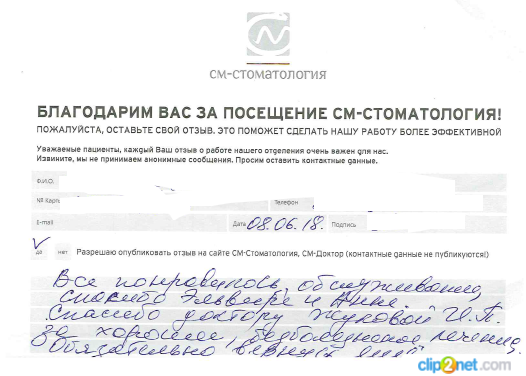 СМ-СТОМАТОЛОГИЯ
БЛАГОДАРИМ ВАС ЗА ПОСЕЩЕНИЕ СМ-СТОМАТОЛОГИЯ!
ПОЖАЛУЙСТА, ОСТАВЬТЕ СВОЙ ОТЗЫВ. ЭТО ПОМОЖЕТ СДЕЛАТЬ НАШУ РАБОТУ БОЛЕЕ ЭФФЕКТИВНОЙ
Уважаемые пациенты, каждый Ваш отзыв о работе нашего отделения очень важен для нас.
Извините, мы не принимаем анонимные сообщения. Просим оставить контактные данные.
Ф.И.О.
№ Карты Телефон
E-mail Дата 08.06.18. Подпись
да нет Разрешаю опубликовать отзыв на сайте СМ-Стоматология, СМ-Доктор (контактные данные не публикуются)
Все понравилось, обслуживание,
спасибо Эльвире и Анне.
Спасибо доктору Жуковой И.П.
за хорошее, безболезненное лечение.
Обязательно вернусь ещё
clip2net.com